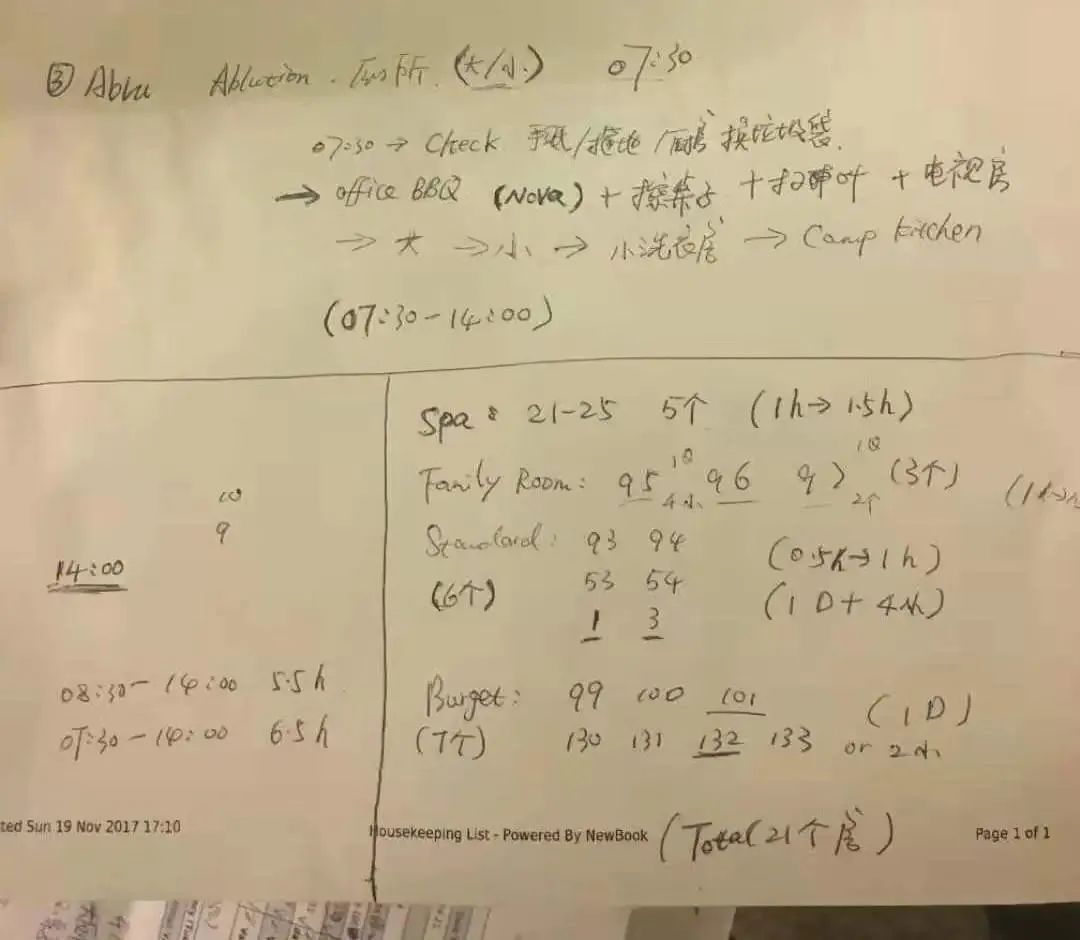 ③ Ablu Ablution. 厕所. (大/小) 07:30
07:30 → Check 手纸/拖地/厨房 换垃圾袋
→ office BBQ (Nova) + 擦桌子 + 扫叶 + 电视房
→ 大 → 小 → 小洗衣房 → Camp kitchen
(07:30-14:00)
10
9
14:00
08:30-14:00 5.5h
07:30-14:00 6.5h
Spa: 21-25 5个 (1h→1.5h)
Family Room: 95 1Q 4小 96 97 1Q 2个 (3个)
Standard: 93 94 (0.5h→1h)
(6个) 53 54 (1 D + 4小)
1 3
Burget: 99 100 101 (1 D)
(7个) 130 131 132 133 or 2小
(Total 21个房)
ted Sun 19 Nov 2017 17:10
Housekeeping List - Powered By NewBook
Page 1 of 1